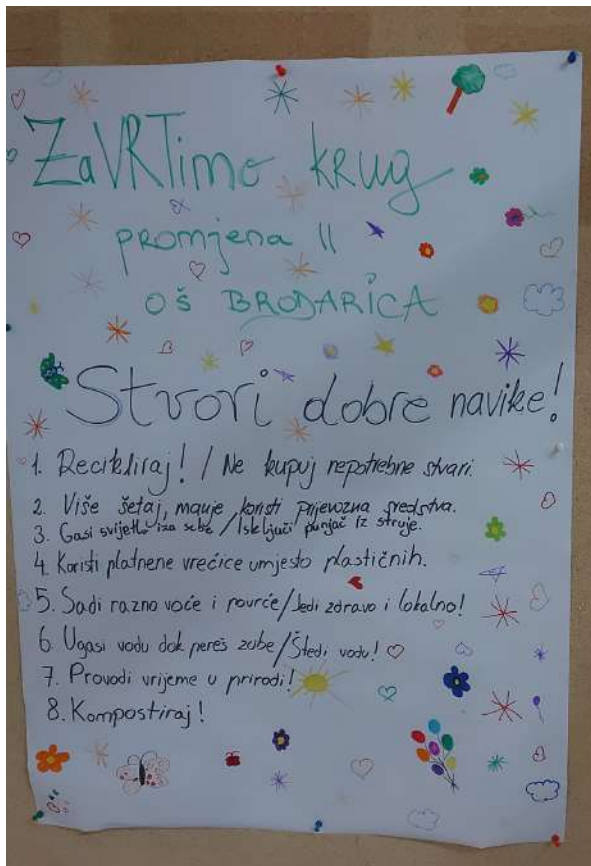 ZaVRTimo krug
promjena II
OŠ BRODARICA
Stvori dobre navike!
1. Recikliraj! / Ne kupuj nepotrebne stvari.
2. Više šetaj, manje koristi prijevozna sredstva.
3. Gasi svijetlo iza sebe / Isključi punjač iz struje.
4. Koristi platnene vrećice umjesto plastičnih.
5. Sadi razno voće i povrće/Jedi zdravo i lokalno!
6. Ugasi vodu dok pereš zube/Štedi vodu!
7. Provodi vrijeme u prirodi!
8. Kompostiraj!